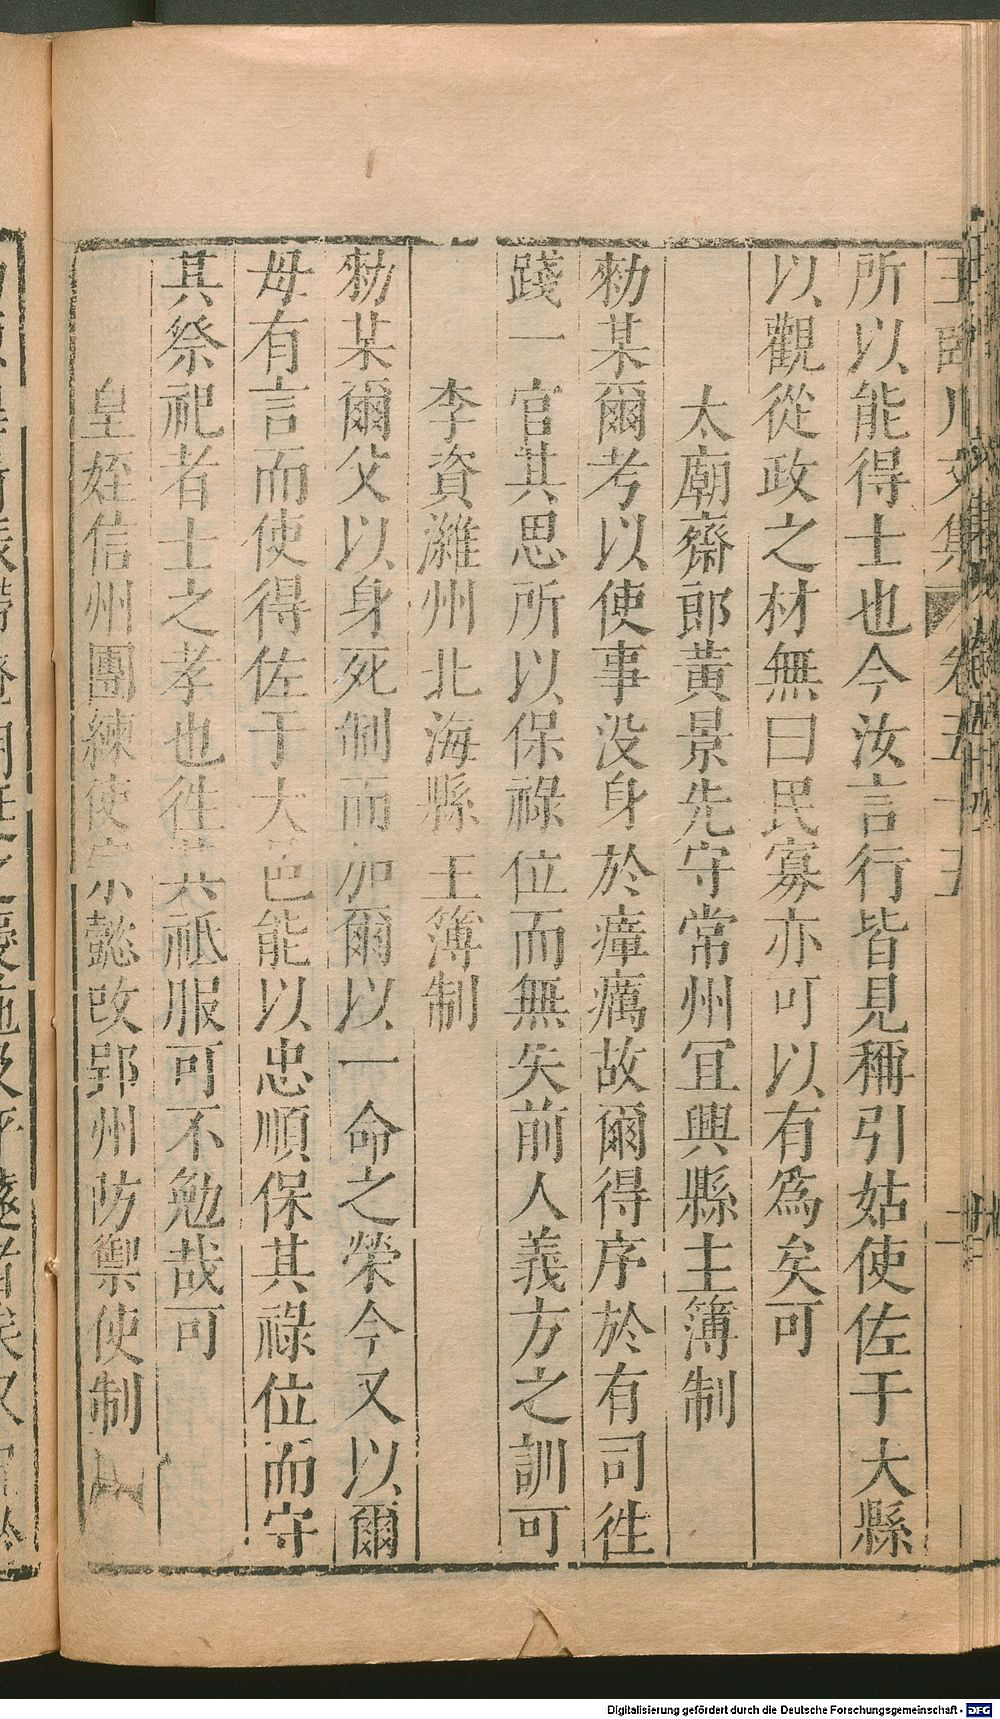 所以能得士也今汝言行皆見稱引姑使佐于大縣
以觀從政之材無曰民寡亦可以有爲矣可
太廟齋郎黃景先守常州冝興縣主簿制
勑某爾考以使事没身於瘴癘故爾得序於有司徃
踐一官其思所以保祿位而無失前人義方之訓可
李資濰州北海縣主簿制
勑某爾父以身死制而加爾以一命之榮今又以爾
母有言而使得佐于大邑能以忠順保其祿位而守
其祭祀者士之孝也徃其祗服可不勉哉可
皇姪信州團練使宗懿改郢州防禦使制
Digitalisierung gefördert durch die Deutsche Forschungsgemeinschaft - DFG